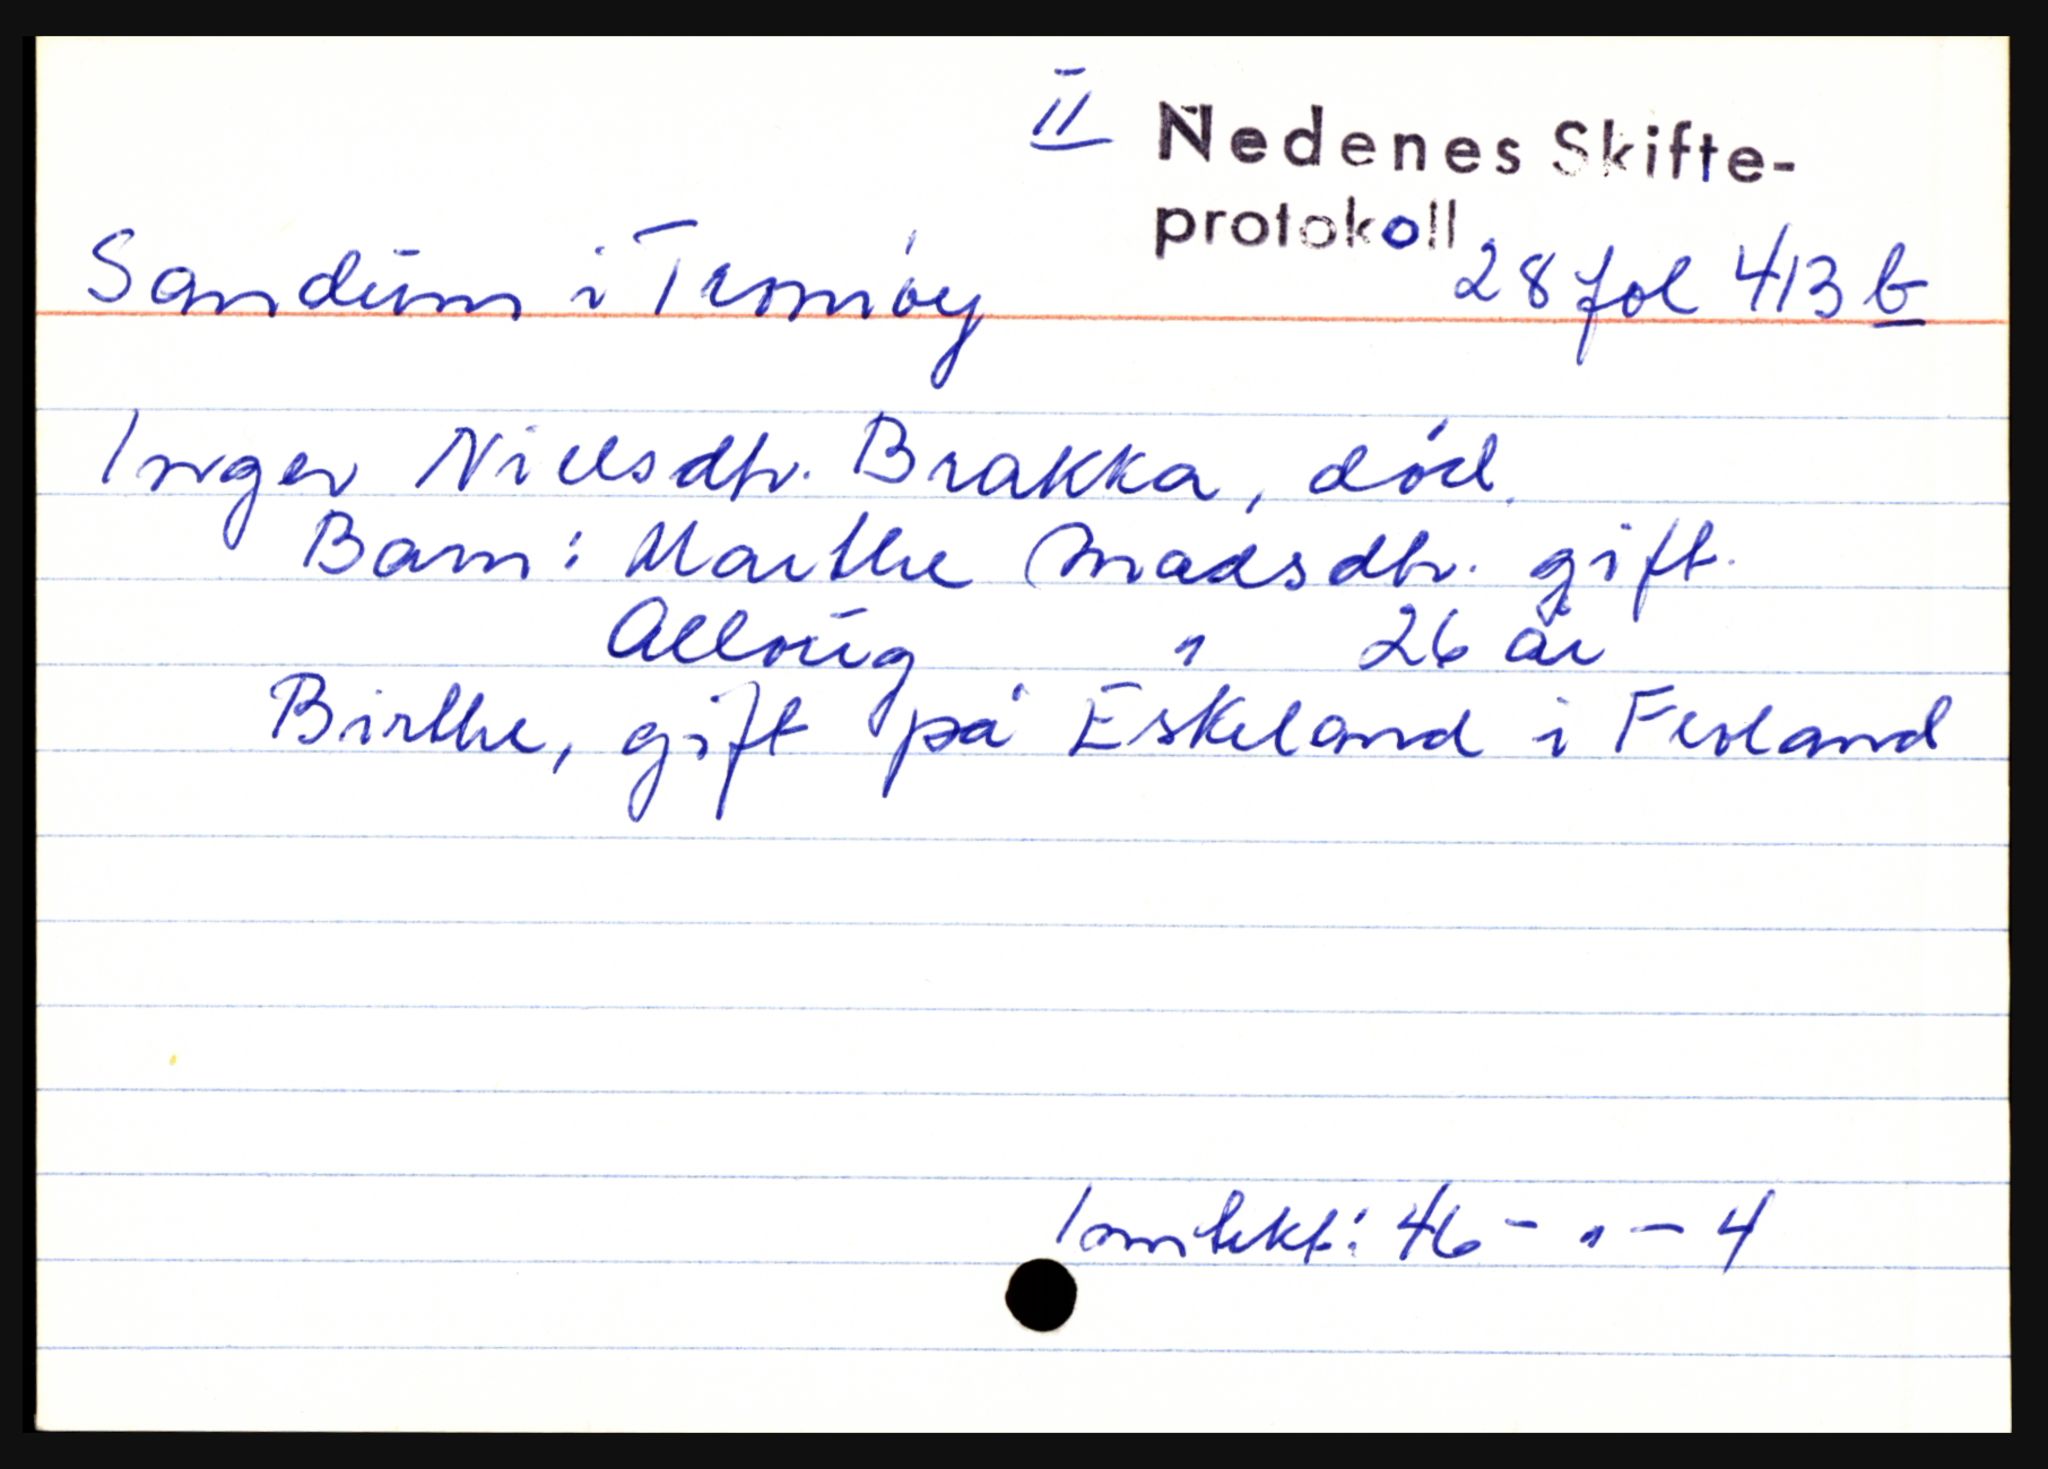 II Nedenes Skifte-
protokoll
Sandum i Tromøy 28 fol 413 b
Inger Nielsdtr. Brakka, død.
Barn: Marthe Madsdtr. gift.
Alloug " 26 år
Birthe, gift på Eskeland i Fevland
Inntekt: 46 - " - 4